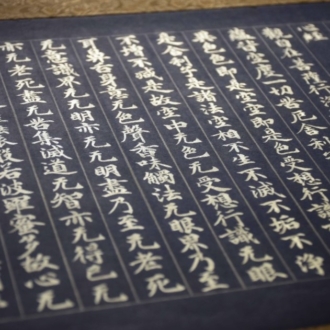 心經
觀自在菩薩行深
蘊皆空度一切苦厄舍利
異色色即是空空即是色受想行識
是舍利子是諸法空相不生不滅不垢不淨
不增不減是故空中无色无受想行識无眼
耳鼻舌身意无色聲香味觸法无眼界乃至
无意識界无明亦无无明盡乃至无老死
亦无老死盡无苦集滅道无智亦无得已无
般若波羅蜜多故心无